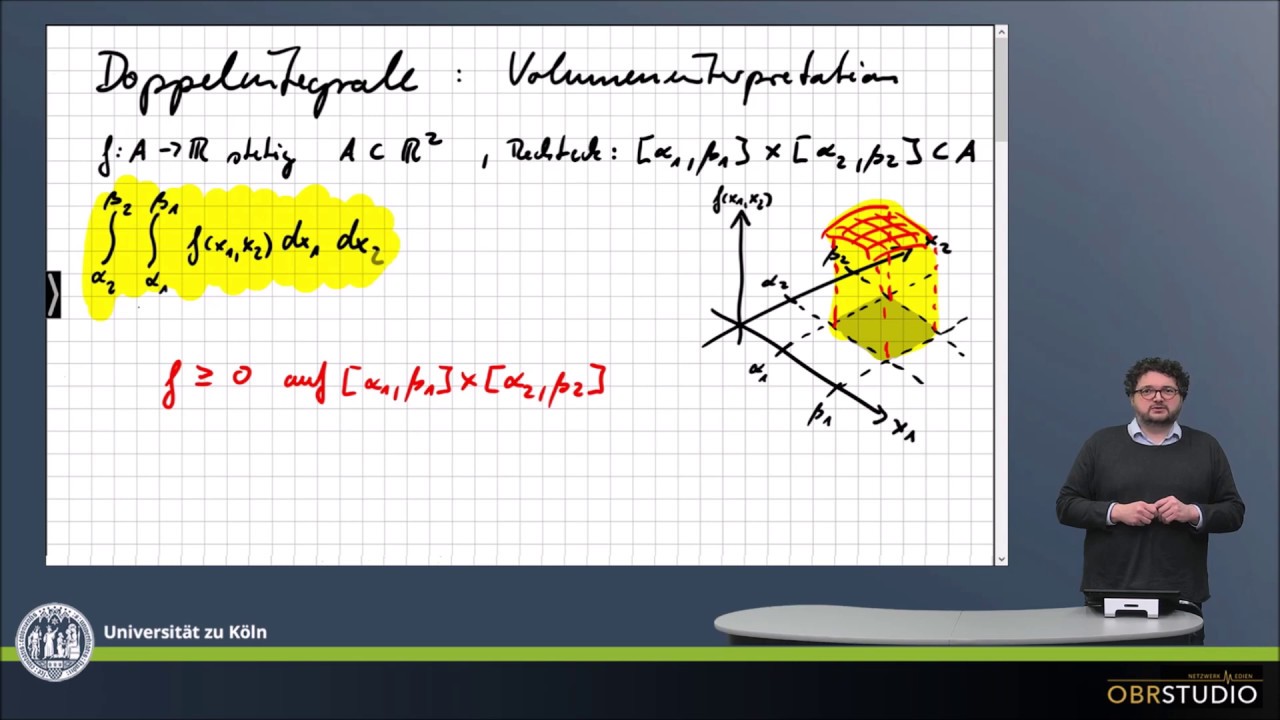 Doppelintegrale : Volumeninterpretation
f: A → ℝ stetig A ⊂ ℝ² , Rechteck: [α₁, β₁] × [α₂, β₂] ⊂ A
∫_{α₂}^{β₂} ∫_{α₁}^{β₁} f(x₁, x₂) dx₁ dx₂
f(x₁, x₂)
x₂
β₂
α₂
α₁
β₁
x₁
f ≥ 0 auf [α₁, β₁] × [α₂, β₂]
Universität zu Köln
NETZWERK MEDIEN
OBRSTUDIO